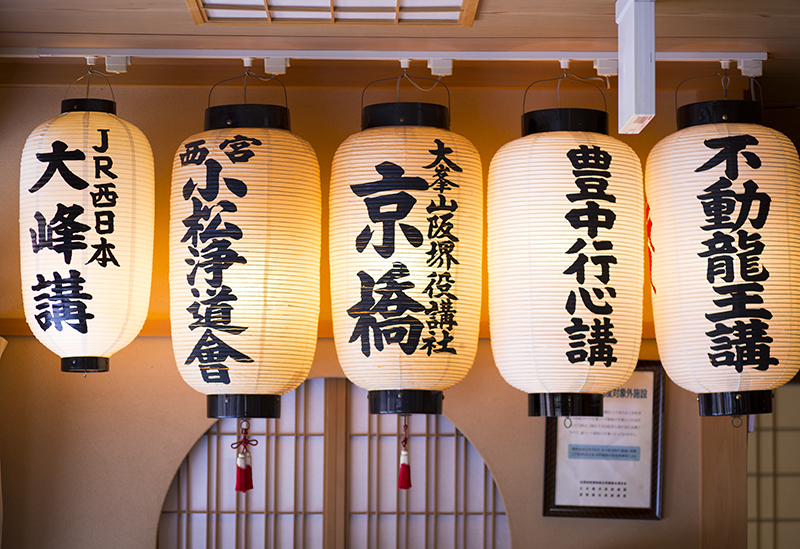 JR西日本
大峰講
西宮
小松浄道會
大峯山阪堺役講社
京橋
豊中行心講
不動龍王講
対象外施設